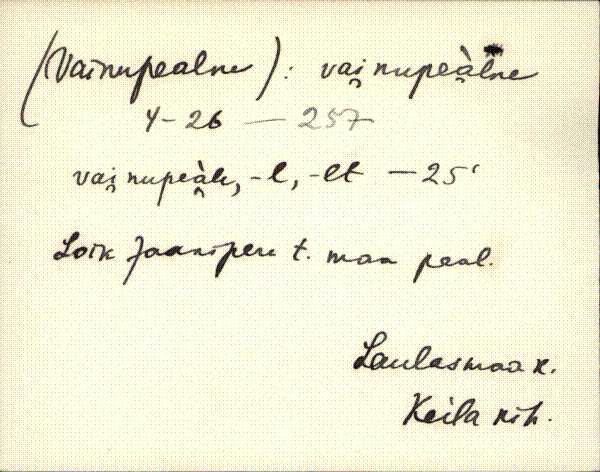 (Vainupealne): vai̯nupeàlne
4-26 — 257
vai̯nupeàle, -l, -lt — 25'
Loik Jaanipere t. maa peal.
Laulasmaa k.
Keila kih.